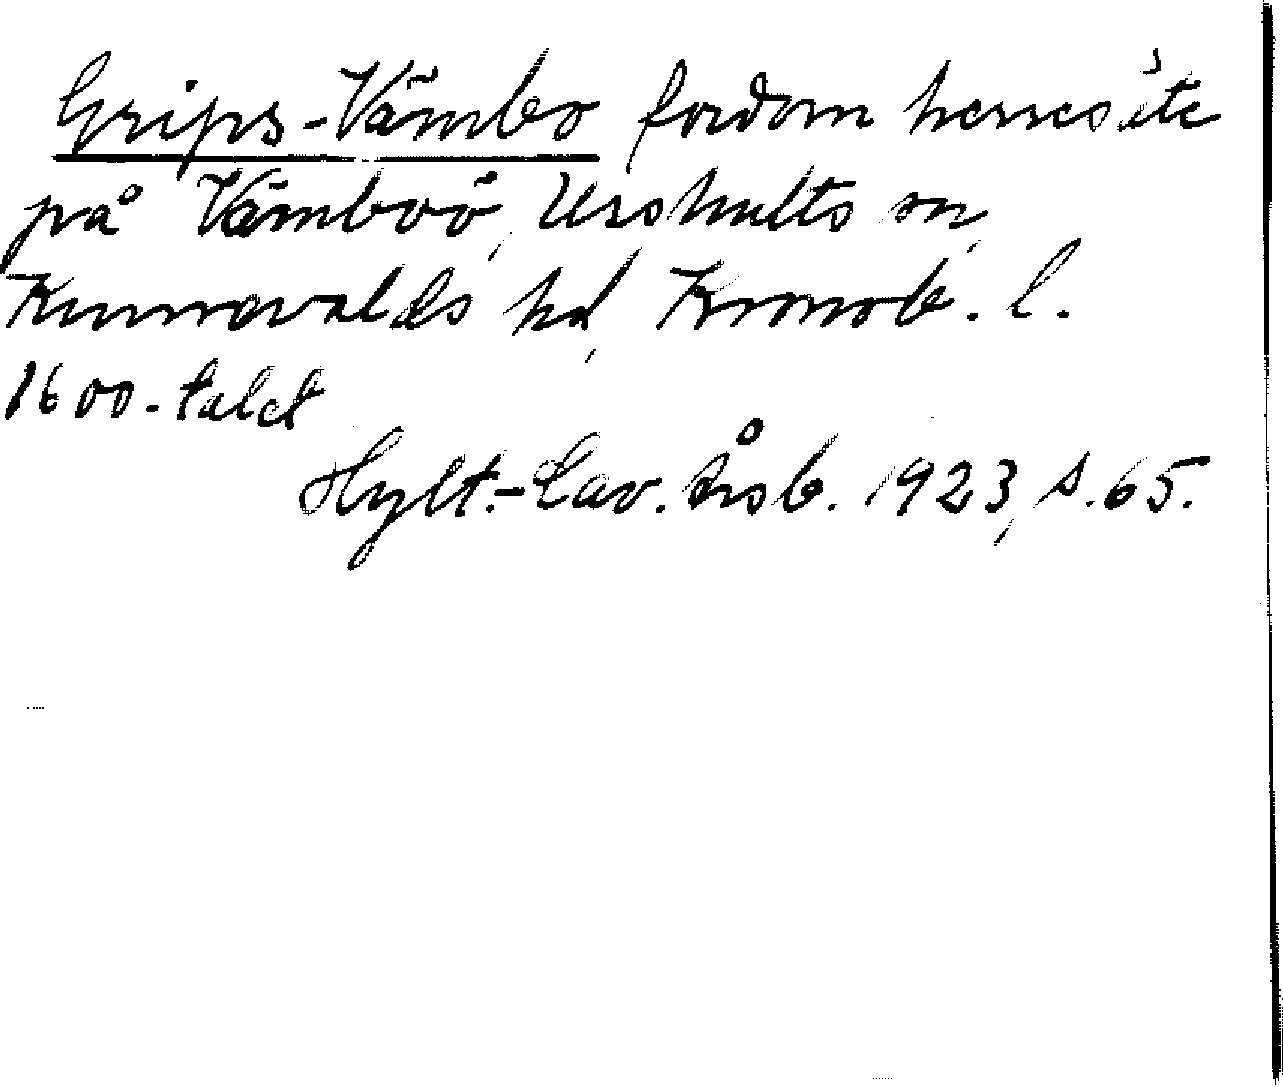 Grips-Vämbo fordom herresäte
på Vämboö, Urshults sn,
Kinnevalds hd, Kronob. l.
1600-talet
Hylt.-Cav. årsb. 1923, s. 65.